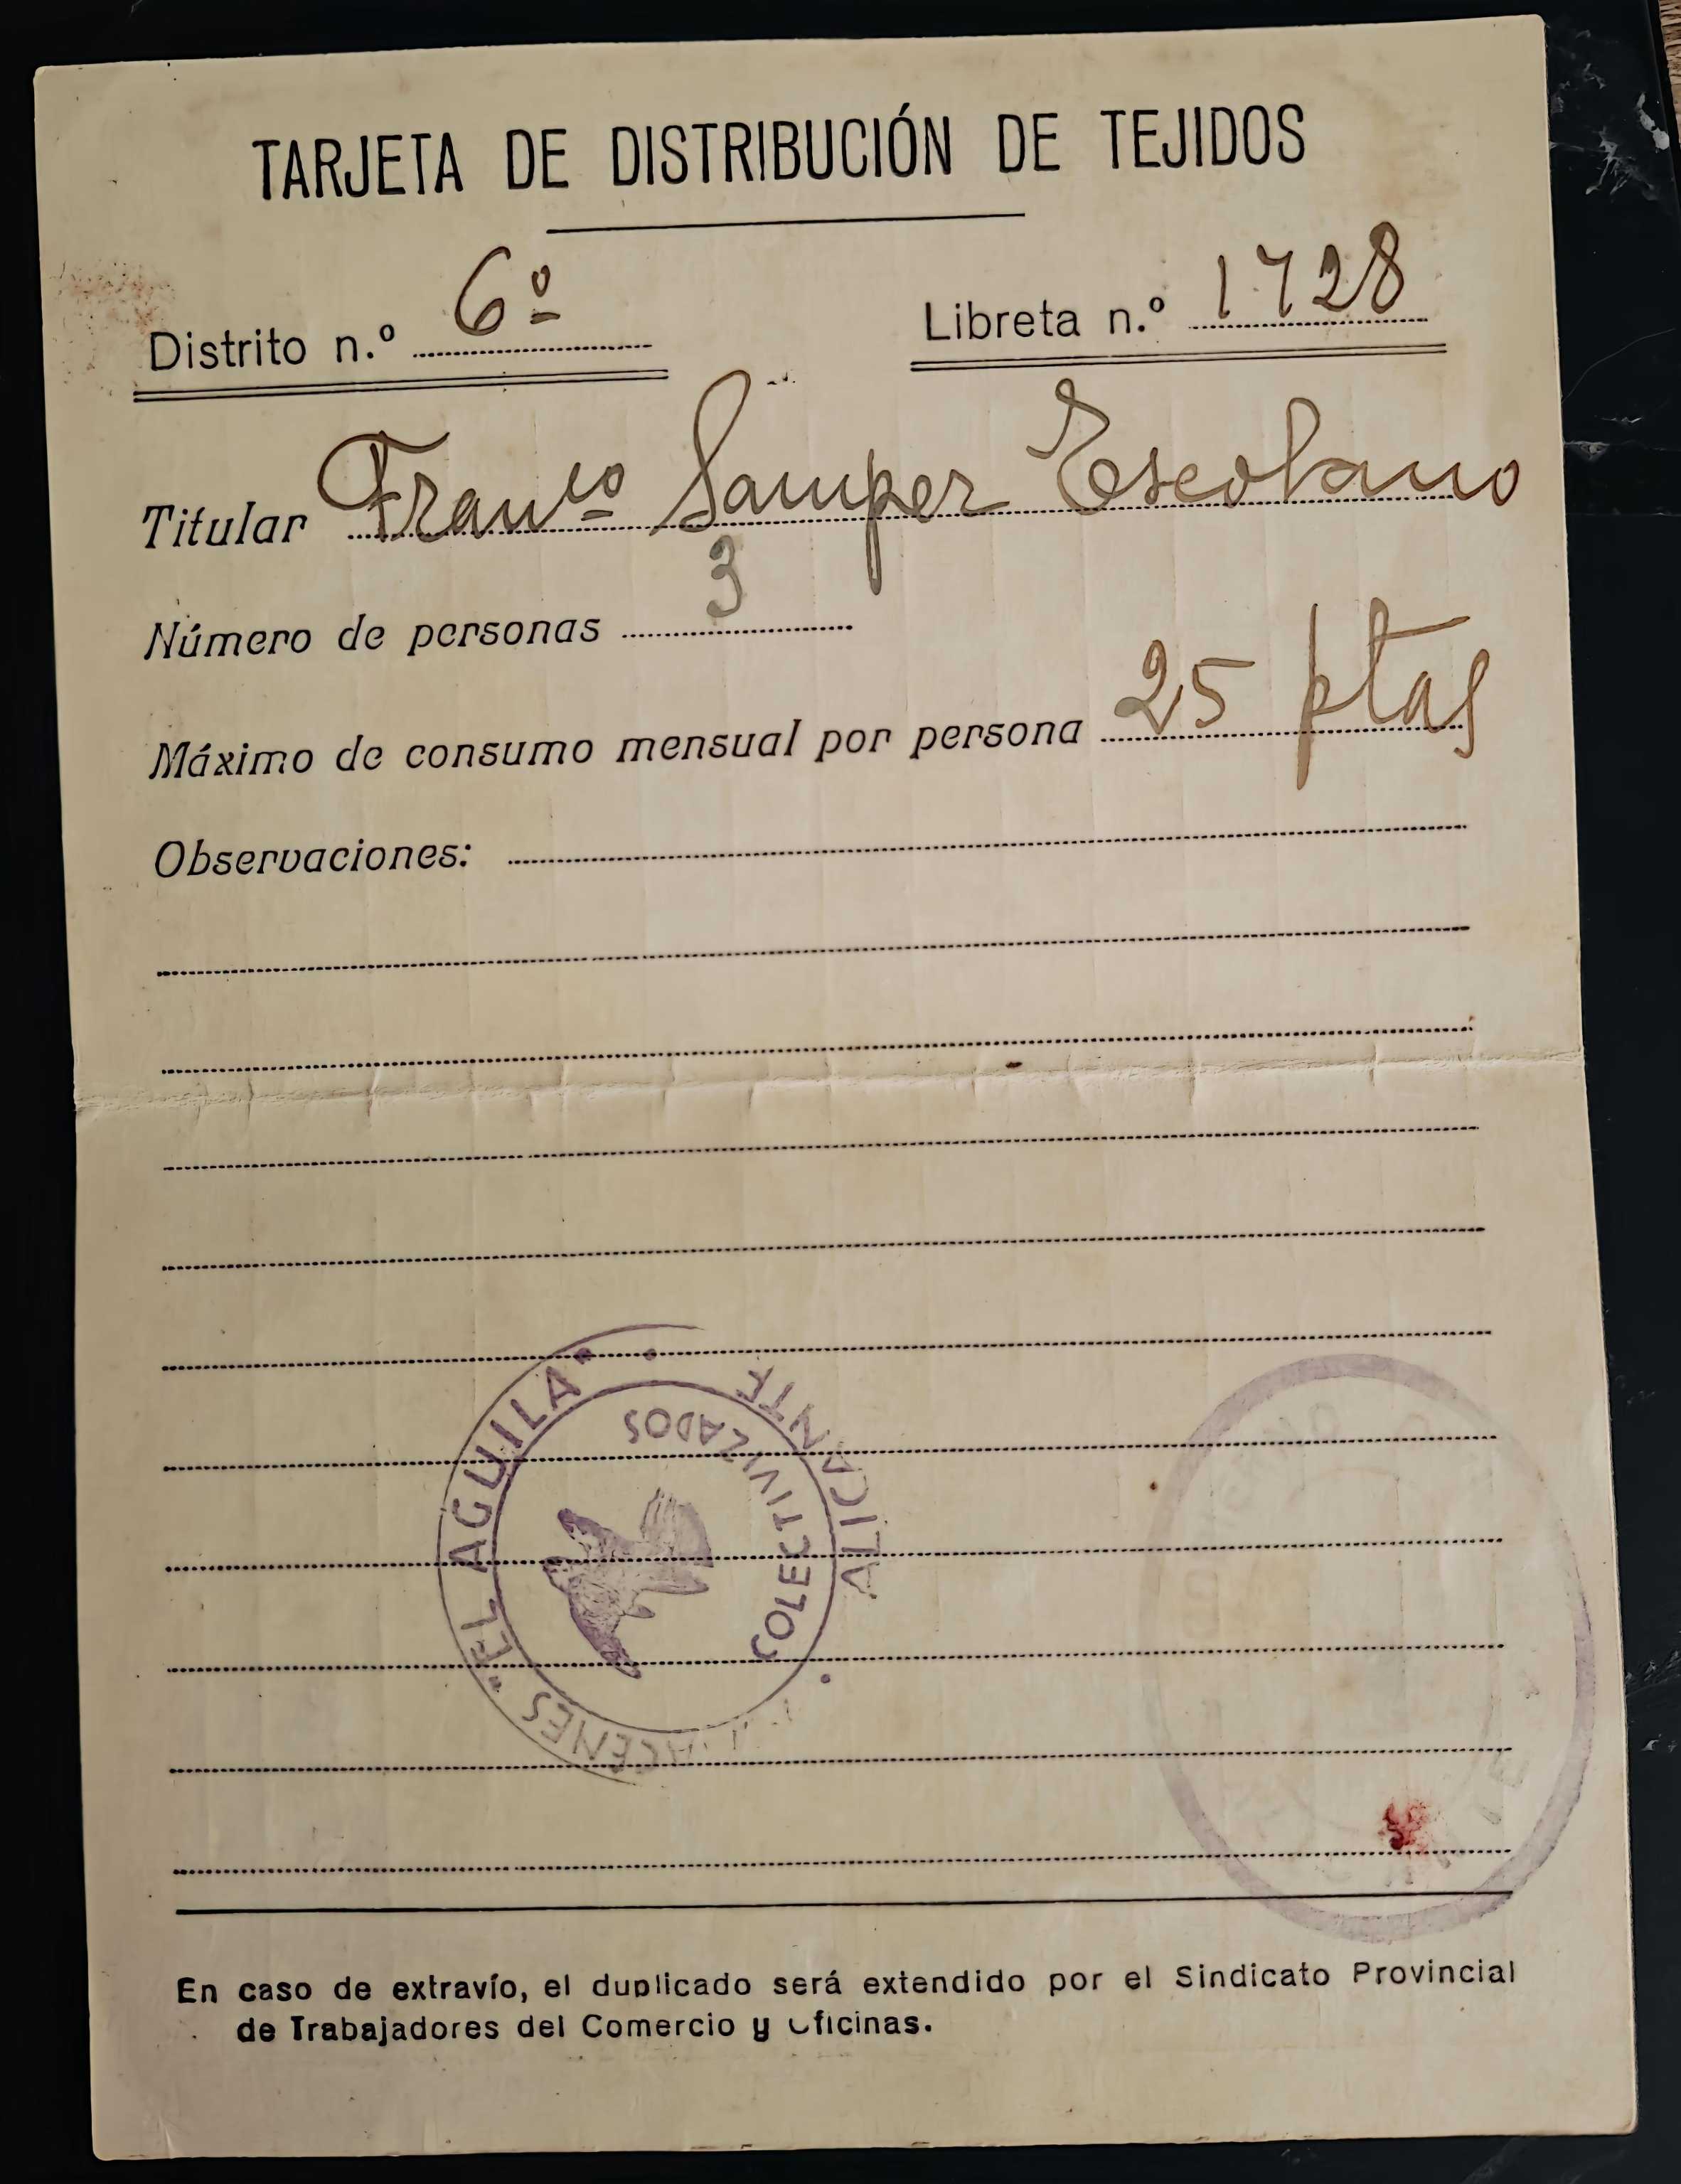 TARJETA DE DISTRIBUCIÓN DE TEJIDOS
Distrito n.º 6º
Libreta n.º 1728
Titular Franco Samper Escolano
Número de personas 3
Máximo de consumo mensual por persona 25 ptas
Observaciones:
"EL AGUILA"
ALICANTE
COLECTIVIZADOS
En caso de extravío, el duplicado será extendido por el Sindicato Provincial
de Trabajadores del Comercio y Oficinas.